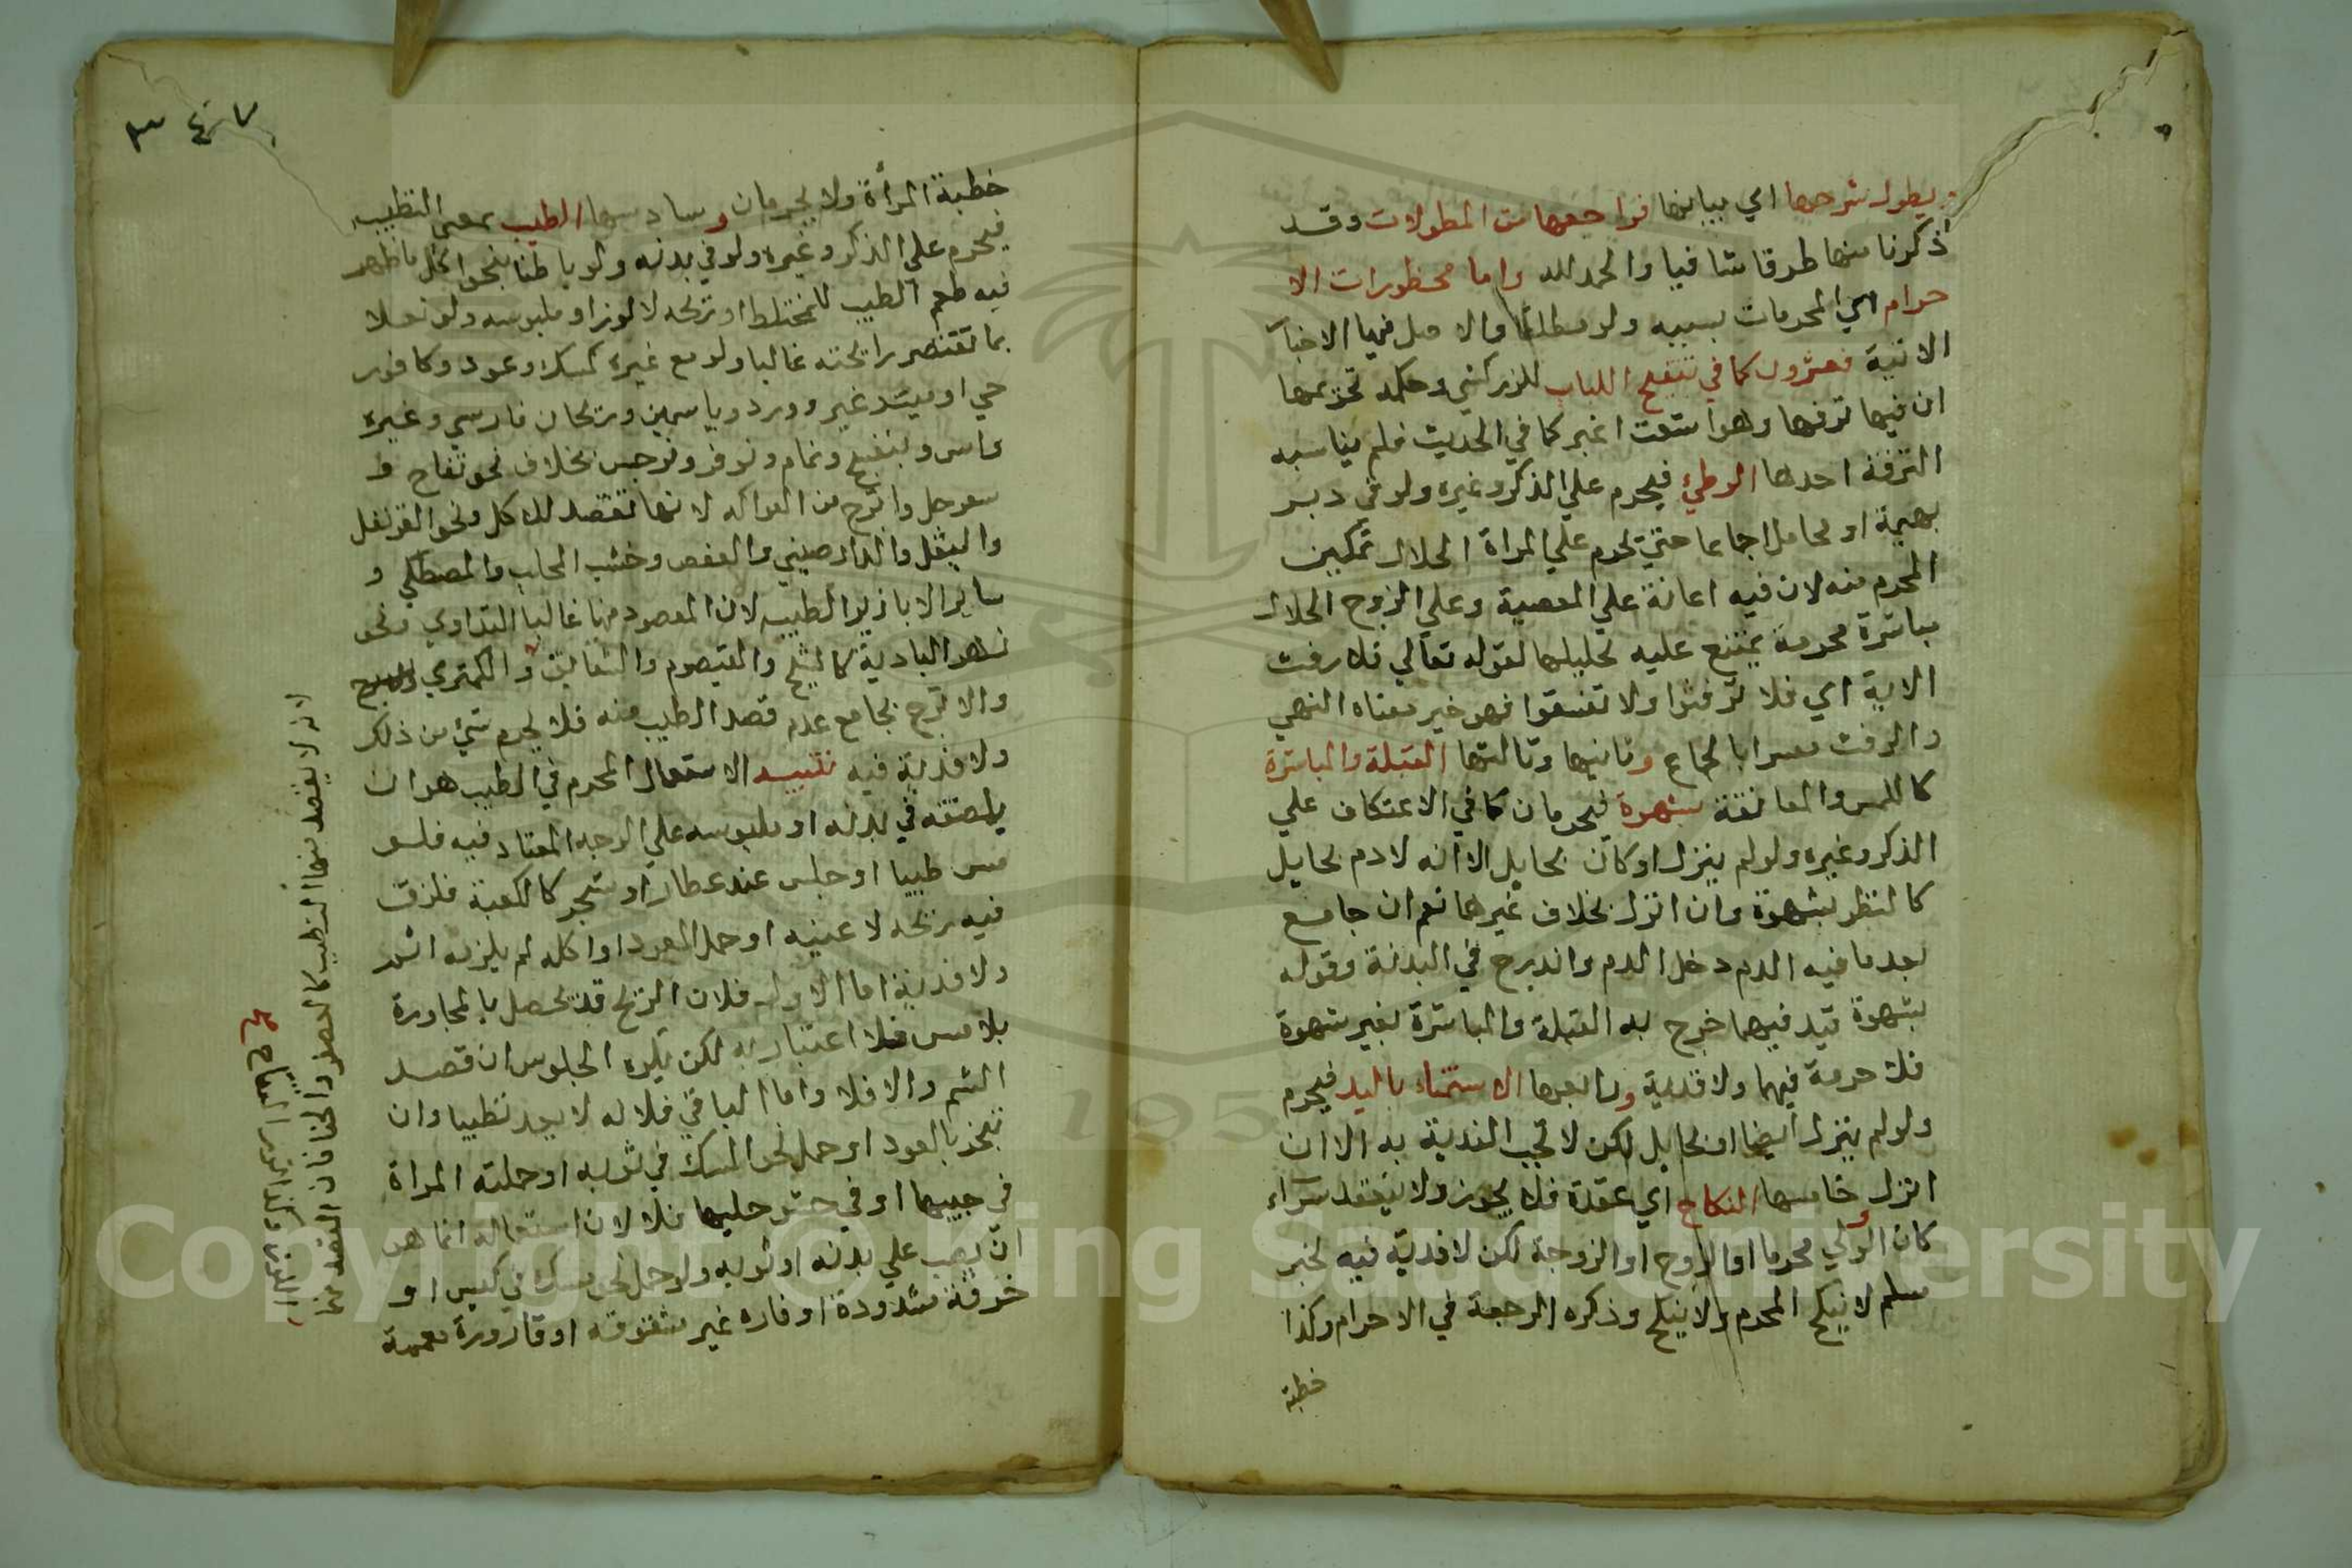 ويطول شرحها اي بيانها فراجعها من المطولات وقد
ذكرنا منها طرقا شافيا والحمد لله واما محظورات الا
حرام اي المحرمات بسببه ولو مطلقا والاصل فيها الاخبار
الاتية فعشرون كما في تنقيح اللباب للزركشي وحكمه تحريمها
ان فيها ترفها وهو اشعث اغبر كما في الحديث فلم يناسبه
الترفه احدها الوطئ فيحرم علي الذكر وغيره ولو في دبر
بهيمة او بحايل اجماعا حتي يحرم علي المراة الحلال تمكين
المحرم منه لان فيه اعانة علي المعصية وعلي الزوج الحلال
مباشرة محرمة يمتنع عليه تحليلها لقوله تعالي فلا رفث
الاية اي فلا ترفثوا ولا تفسقوا فهو خبر معناه النهي
والرفث مفسر بالجماع وثانيها وثالثها القبلة والمباشرة
كاللمس والمعانقة بشهوة فيحرمان كما في الاعتكاف علي
الذكر وغيره ولو لم ينزل او كان بحايل الا انه لا دم بحايل
كالنظر بشهوة وان انزل بخلاف غيرهما نعم ان جامع
بعد ما فيه الدم دخل الدم واندرج في البدنة وقوله
بشهوة قيد فيهما خرج به القبلة والمباشرة بغير شهوة
فلا حرمة فيهما ولا فدية ورابعها الاستمناء باليد فيحرم
ولو لم ينزل ايضا او بحايل لكن لا تجب الفدية به الا ان
انزل خامسها النكاح اي عقده فلا يجوز ولا ينعقد سواء
كان الولي محرما او الزوج او الزوجة لكن لا فدية فيه لخبر
مسلم لا ينكح المحرم ولا ينكح وذكره الرجعة في الاحرام وكذا
خطبة
٣٤٧
خطبة المرأة ولا يحرمان وسادسها الطيب بمعني التطيب
فيحرم علي الذكر وغيره ولو في بدنه ولو باطنا بنحو اكل ما ظهر
فيه طعم الطيب المختلط او ريحه لا لونه او ملبوسه ولو نعلا
بما تقصد رائحته غالبا ولو مع غيره كمسك وعود وكافور
حي او ميت وورد وياسمين وريحان فارسي وغيره
واس وبنفسج ونمام ونوفر ونرجس بخلاف نحو تفاح و
سفرجل واترج من الفواكه لانها تقصد للاكل ونحو القرنفل
والدارصيني والعفص وخشب المحلب والمصطكي و
ساير الابازير الطيبه لان المقصود منها غالبا التداوي ونحو
البادية كالشيح والقيصوم والشقايق والكمتري
والاترج بجامع عدم قصد الطيب منه فلا يحرم شئ من ذلك
ولا فدية فيه تنبيه الاستعمال المحرم في الطيب هو ان
يلصقه في بدنه او ملبوسه علي الوجه المعتاد فيه فلو
مس طيبا او جلس عند عطار او متجمر كالكعبة فلزق
فيه ريحه لا عينه او حمل العود او اكله لم يلزمه اثم
ولا فدية اما الاول فلان الريح قد يحصل بالمجاورة
بلا مس فلا اعتبار به لكن يكره الجلوس ان قصد
الشم والا فلا واما الباقي فلانه لا يعد تطيبا وان
تبخر بالعود او حمل نحو المسك في ثوبه او حملته المراة
في جيبها او في حشو حليها فلا لان استعماله انما هو
ان يصب علي بدنه او ثوبه ولو حمل نحو مسك في كيس او
خرقة مشدودة او فاره غير مشقوقه او قارورة مصممة
لانه لا يقصد منها التطيب كالعصفر والحنا فان القصد منها
صح